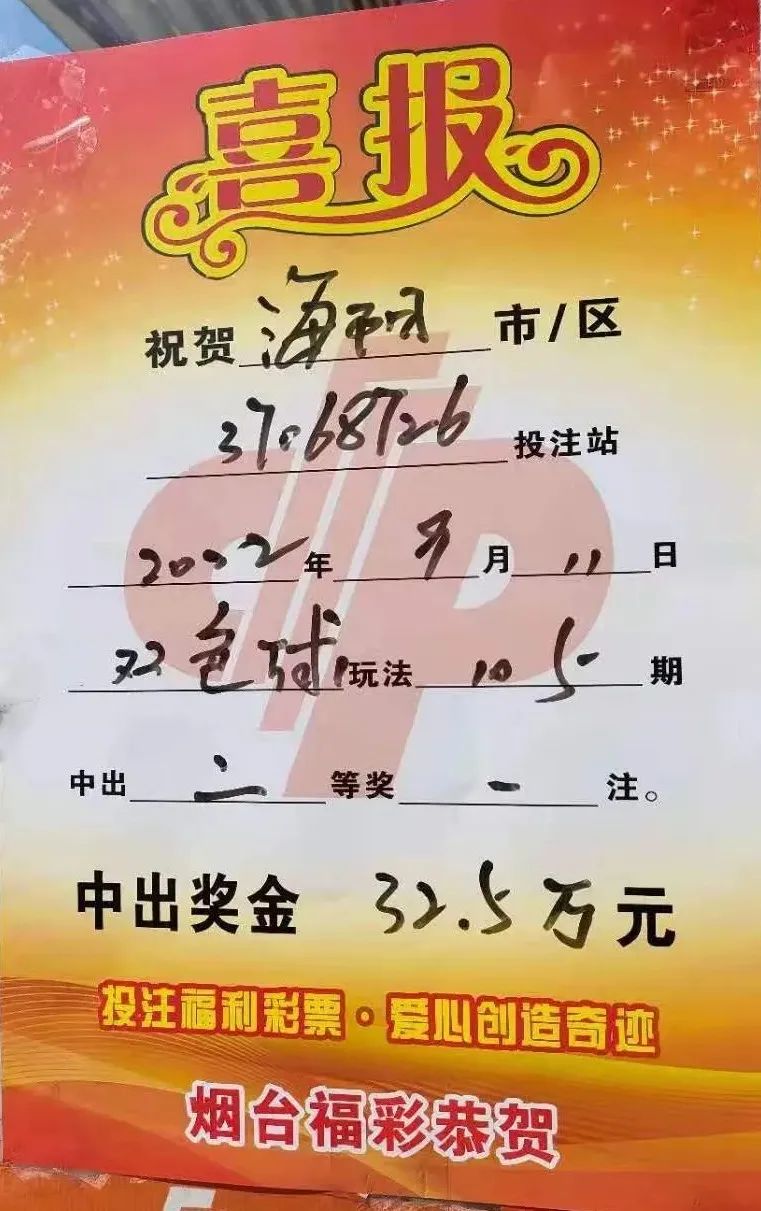 喜报
祝贺海阳市/区
37068726投注站
2022年9月11日
双色球玩法105期
中出二等奖一注。
中出奖金 32.5万元
投注福利彩票·爱心创造奇迹
烟台福彩恭贺